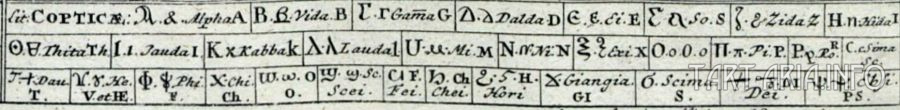 Lit: COPTICÆ: Ⲁ. ⲁ. Alpha A Ⲃ. ⲃ. Vida B Ⲅ. ⲅ Gam̃a G Ⲇ. ⲇ Dalda D Ⲉ. ⲉ. Ei. E So. S Ⲍ. ⲍ Zida Z Ⲏ. ⲏ Hida I
Ⲑ. ⲑ Thita Th Ⲓ. ⲓ. Jauda I Ⲕ ⲕ Kabba k Ⲗ ⲗ Lauda l Ⲙ. ⲙ. Mi. M Ⲛ. ⲛ Ni. N Ⲝ. ⲝ Exi X Ⲟ. ⲟ O. o Ⲡ. ⲡ. Pi. P. Ⲣ ⲣ. Ro R Ⲥ. ⲥ Sima Se.
Ⲧ. ⲧ Dau T. Ⲩ. ⲩ. He. V et HE Ⲫ. ⲫ Phi F. Ⲭ. Chi Ch. Ⲱ. ⲱ. O O. Ϣ. ϣ. Sc. Scei. Ϥ F. Fei. Ϧ. Ch Chei. Ϩ. ϩ. H. Hori Ϫ Giangia GI Ϭ. Scima S. Dei. PS.
TART-ARIA.INFO